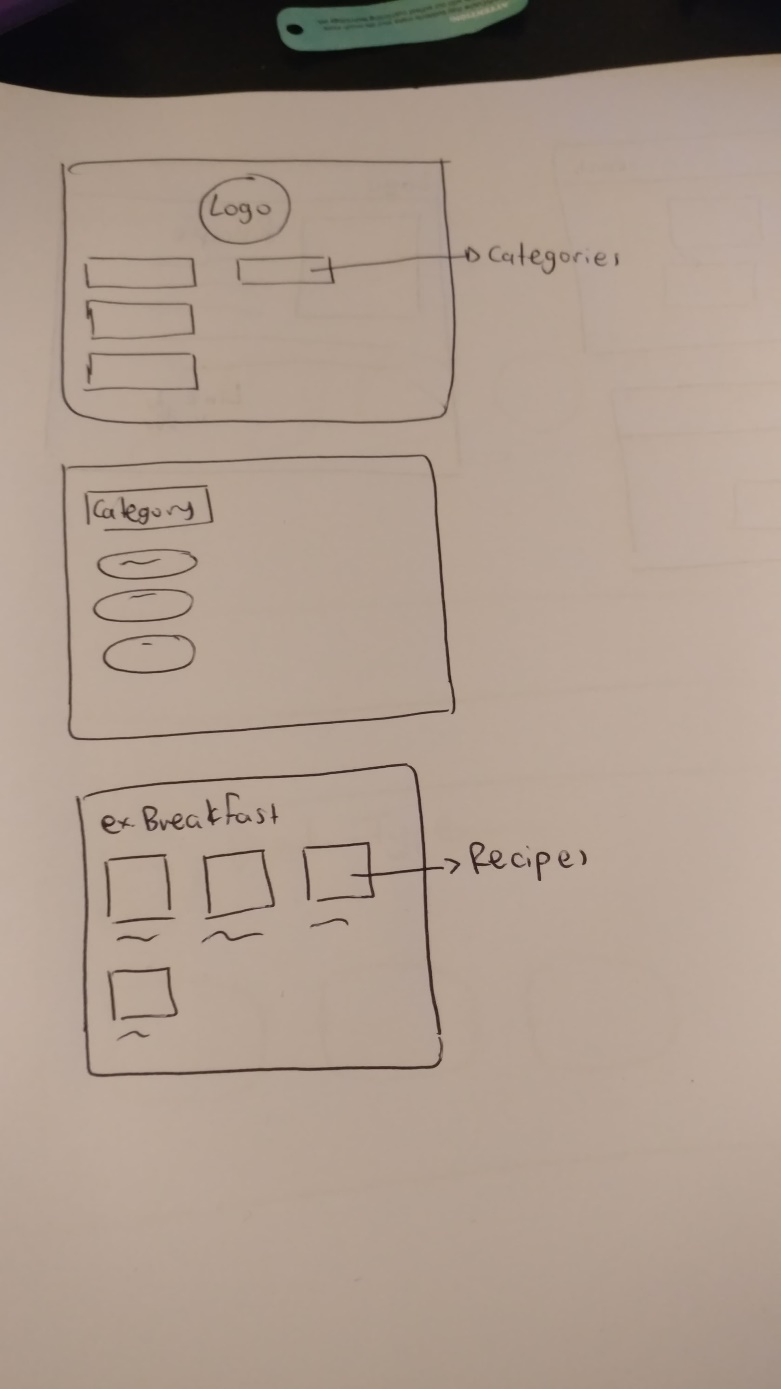 ATTENTION
Logo
Categories
Category
ex Breakfast
Recipes